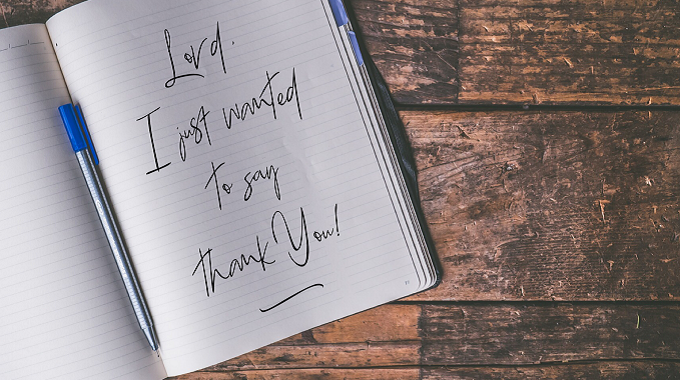 Lord.
I just wanted
to say
thank You!